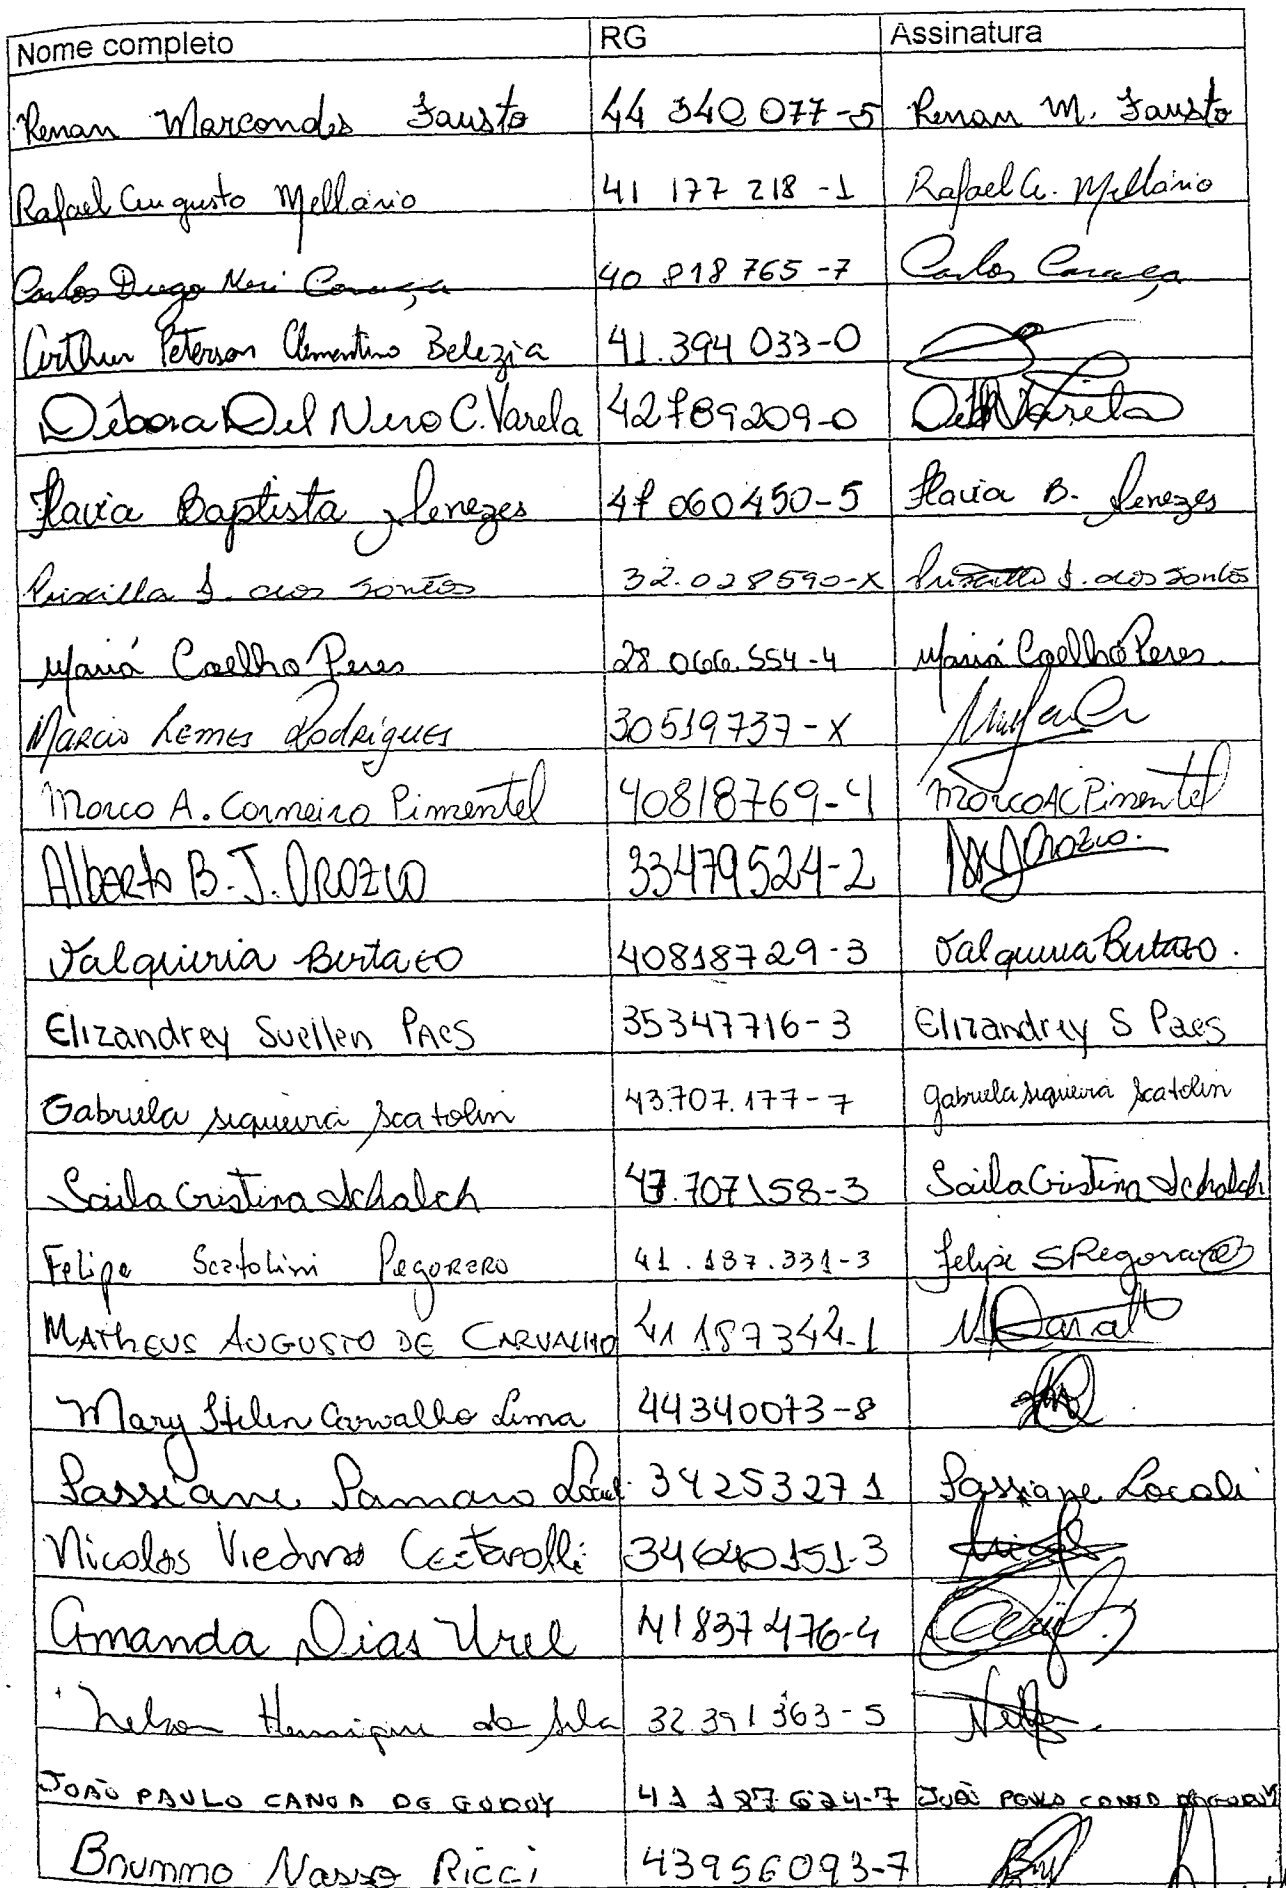 Nome completo RG Assinatura
Renan Marcondes Fausto 44 340 077-5 Renan M. Fausto
Rafael Augusto Mellario 41 177 218-1 Rafael A. Mellario
Carlos Diego Neri 40 818 765-7 Carlos
Arthur Peterson Clementino Belezia 41.394 033-0
Débora Del Nero C. Varela 42789209-0 Varela
Flavia Baptista Menezes 47 060450-5 Flavia B. Menezes
Priscilla S. dos Santos 32.028590-X Priscilla S. dos Santos
Mariá Coelho Peres 28 066.554-4 Mariá Coelho Peres
Marcio Lemes Rodrigues 30519737-X
Marco A. Carneiro Pimentel 40818769-4 Marco A C Pimentel
Alberto B. J. Orozco 33479524-2 Orozco
Valquiria Bertaco 40818729-3 Valquiria
Elizandrey Suellen Paes 35347716-3 Elizandrey S Paes
Gabriela siqueira Scatolin 43.707.177-7 Gabriela siqueira Scatolin
Saila Cristina Schalch 47.707158-3 Saila Cristina Schalch
Felipe Scatolini Pegoraro 41.187.331-3 Felipe S Pegoraro
MATHEUS AUGUSTO DE CARVALHO 41 187344-1
Mary Carvalho Lima 44340073-8
Lassiane Locali 34253271 Lassiane Locali
Nicolas 34640151-3
Amanda Dias Urel 41837476-4
Nelson Henrique da Silva 32 391363-5
JOÃO PAULO CANOA DE GODOY 41 187624-7 JOÃO PAULO CANOA DE GODOY
Brunno Nasso Ricci 43956093-7